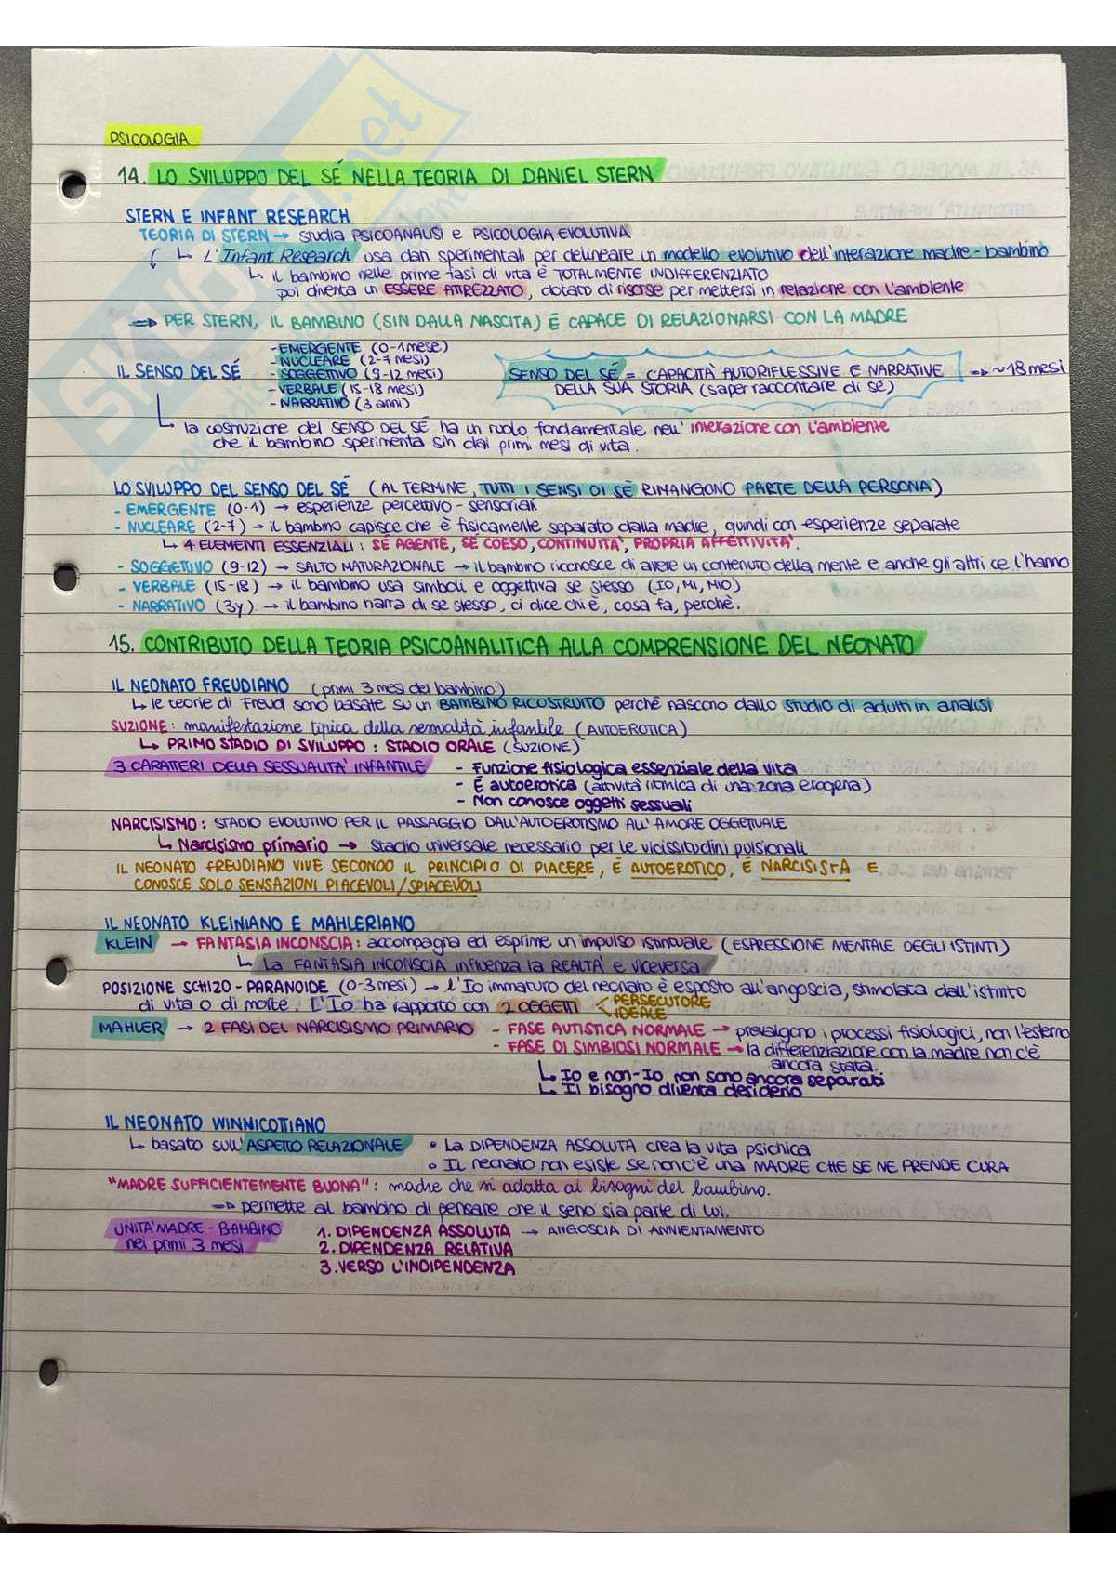 PSICOLOGIA
14. LO SVILUPPO DEL SÉ NELLA TEORIA DI DANIEL STERN
STERN E INFANT RESEARCH
TEORIA DI STERN → studia PSICOANALISI e PSICOLOGIA EVOLUTIVA
↳ L'Infant Research usa dati sperimentali per delineare un modello evolutivo dell'interazione madre-bambino
↳ il bambino nelle prime fasi di vita è TOTALMENTE INDIFFERENZIATO
poi diventa un ESSERE ATTREZZATO, dotato di risorse per mettersi in relazione con l'ambiente
⇒ PER STERN, IL BAMBINO (SIN DALLA NASCITA) È CAPACE DI RELAZIONARSI CON LA MADRE
IL SENSO DEL SÉ
- EMERGENTE (0-1 mese)
- NUCLEARE (2-7 mesi)
- SOGGETTIVO (9-12 mesi)
- VERBALE (15-18 mesi)
- NARRATIVO (3 anni)
SENSO DEL SÉ = CAPACITÀ AUTORIFLESSIVE E NARRATIVE ⇒ ~18 mesi
DELLA SUA STORIA (saper raccontare di sé)
↳ la costruzione del SENSO DEL SÉ ha un ruolo fondamentale nell'interazione con l'ambiente
che il bambino sperimenta sin dai primi mesi di vita.
LO SVILUPPO DEL SENSO DEL SÉ (AL TERMINE, TUTTI I SENSI DI SÉ RIMANGONO PARTE DELLA PERSONA)
- EMERGENTE (0-1) → esperienze percettivo-sensoriali
- NUCLEARE (2-7) → il bambino capisce che è fisicamente separato dalla madre, quindi con esperienze separate
↳ 4 ELEMENTI ESSENZIALI: SÉ AGENTE, SÉ COESO, CONTINUITÀ, PROPRIA AFFETTIVITÀ.
- SOGGETTIVO (9-12) → SALTO MATURAZIONALE → il bambino riconosce di avere un contenuto della mente e anche gli altri ce l'hanno
- VERBALE (15-18) → il bambino usa simboli e oggettiva se stesso (IO, MI, MIO)
- NARRATIVO (3y) → il bambino narra di se stesso, ci dice chi è, cosa fa, perchè.
15. CONTRIBUTO DELLA TEORIA PSICOANALITICA ALLA COMPRENSIONE DEL NEONATO
IL NEONATO FREUDIANO (primi 3 mesi del bambino)
↳ le teorie di Freud sono basate su un BAMBINO RICOSTRUITO perchè nascono dallo studio di adulti in analisi
SUZIONE: manifestazione tipica della sessualità infantile (AUTOEROTICA)
↳ PRIMO STADIO DI SVILUPPO: STADIO ORALE (SUZIONE)
3 CARATTERI DELLA SESSUALITÀ INFANTILE
- Funzione fisiologica essenziale della vita
- È autoerotica (attività ritmica di una zona erogena)
- Non conosce oggetti sessuali
NARCISISMO: STADIO EVOLUTIVO PER IL PASSAGGIO DALL'AUTOEROTISMO ALL'AMORE OGGETTUALE
↳ Narcisismo primario → Stadio universale necessario per le vicissitudini pulsionali
IL NEONATO FREUDIANO VIVE SECONDO IL PRINCIPIO DI PIACERE, È AUTOEROTICO, È NARCISISTA E
CONOSCE SOLO SENSAZIONI PIACEVOLI/SPIACEVOLI
IL NEONATO KLEINIANO E MAHLERIANO
KLEIN → FANTASIA INCONSCIA: accompagna ed esprime un impulso istintuale (ESPRESSIONE MENTALE DEGLI ISTINTI)
↳ La FANTASIA INCONSCIA influenza la REALTÀ e viceversa
POSIZIONE SCHIZO-PARANOIDE (0-3 mesi) → l'Io immaturo del neonato è esposto all'angoscia, stimolata dall'istinto
di vita o di morte. L'Io ha rapporto con 2 OGGETTI < PERSECUTORE
IDEALE
MAHLER → 2 FASI DEL NARCISISMO PRIMARIO - FASE AUTISTICA NORMALE → prevalgono i processi fisiologici, non l'esterno
- FASE DI SIMBIOSI NORMALE → la differenziazione con la madre non c'è
ancora stata.
↳ Io e non-Io non sono ancora separati
↳ Il bisogno diventa desiderio
IL NEONATO WINNICOTTIANO
↳ basato sull'ASPETTO RELAZIONALE • La DIPENDENZA ASSOLUTA crea la vita psichica
• Il neonato non esiste se non c'è una MADRE CHE SE NE PRENDE CURA
"MADRE SUFFICIENTEMENTE BUONA": madre che si adatta ai bisogni del bambino.
⇒ permette al bambino di pensare che il seno sia parte di lui.
UNITÀ MADRE-BAMBINO
nei primi 3 mesi
1. DIPENDENZA ASSOLUTA → ANGOSCIA DI ANNIENTAMENTO
2. DIPENDENZA RELATIVA
3. VERSO L'INDIPENDENZA